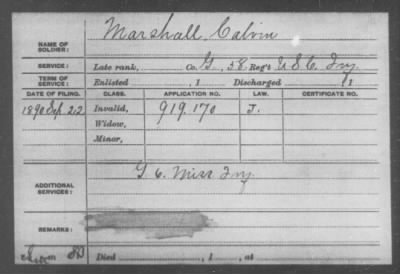 Marshall, Calvin
NAME OF SOLDIER:
SERVICE: Late rank, Co. G, 58 Reg't U.S.C. Inf.
TERM OF SERVICE: Enlisted , 1 Discharged , 1
DATE OF FILING. CLASS. APPLICATION NO. LAW. CERTIFICATE NO.
1890 Sep. 22 Invalid, 919.170 J.
Widow,
Minor,
ADDITIONAL SERVICES: G 6 Miss Inf.
REMARKS:
Died , 1 , at